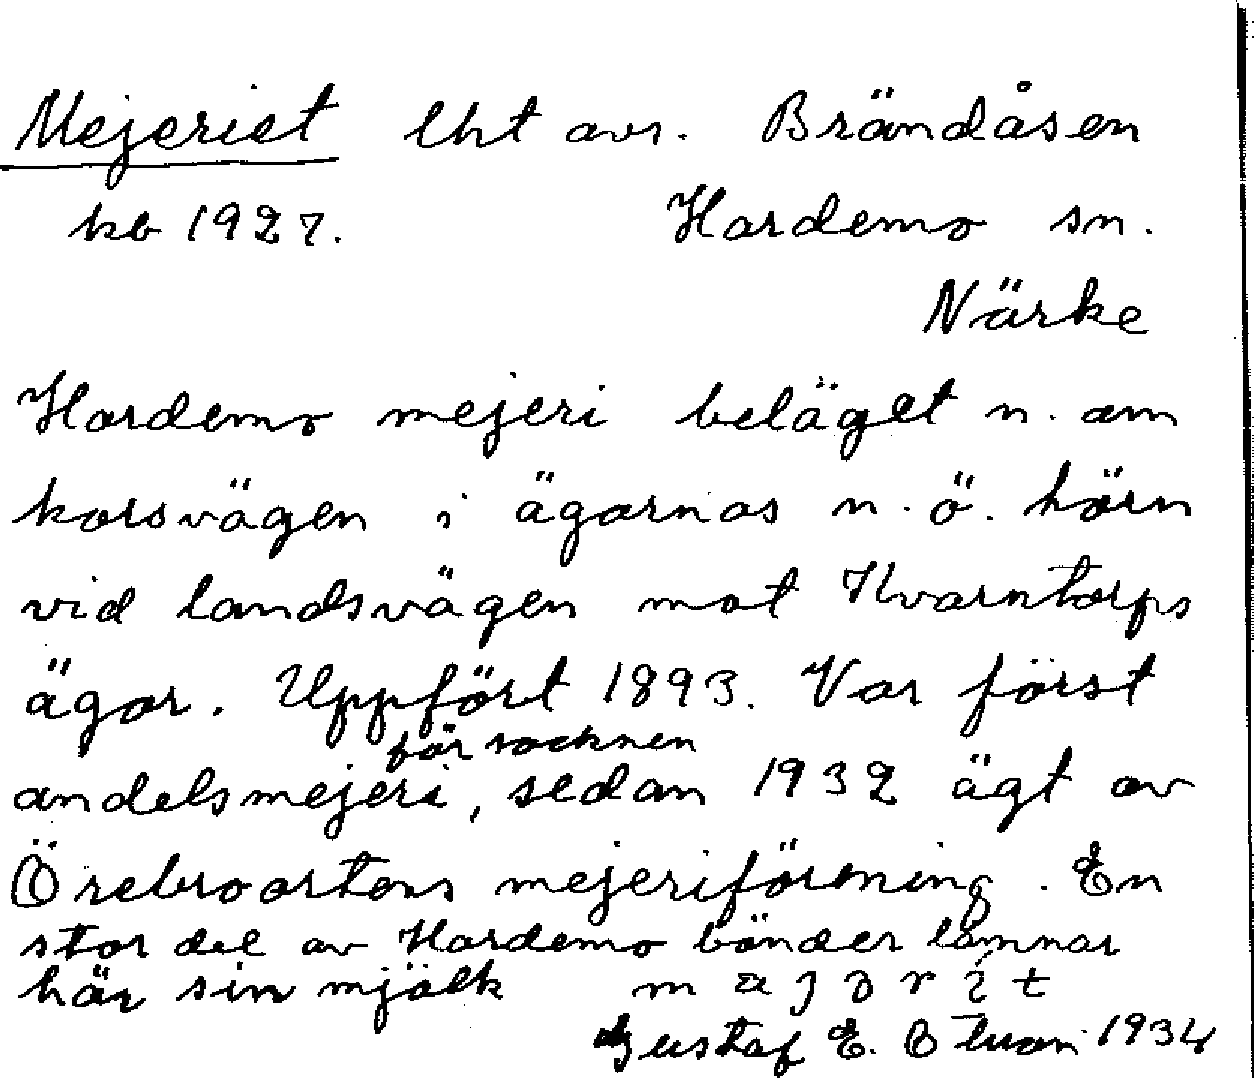 Mejeriet lht avs. Brändåsen
kb 1927. Hardemo sn.
Närke
Hardemo mejeri beläget n. om
korsvägen i ägornas n.ö. hörn
vid landsvägen mot Kvarntorps
ägor. Uppfört 1893. Var först
för socknen
andelsmejeri, sedan 1932 ägt av
Örebroortens mejeriförening. En
stor del av Hardemo bönder lämnar
här sin mjölk
Gustaf E. 1934